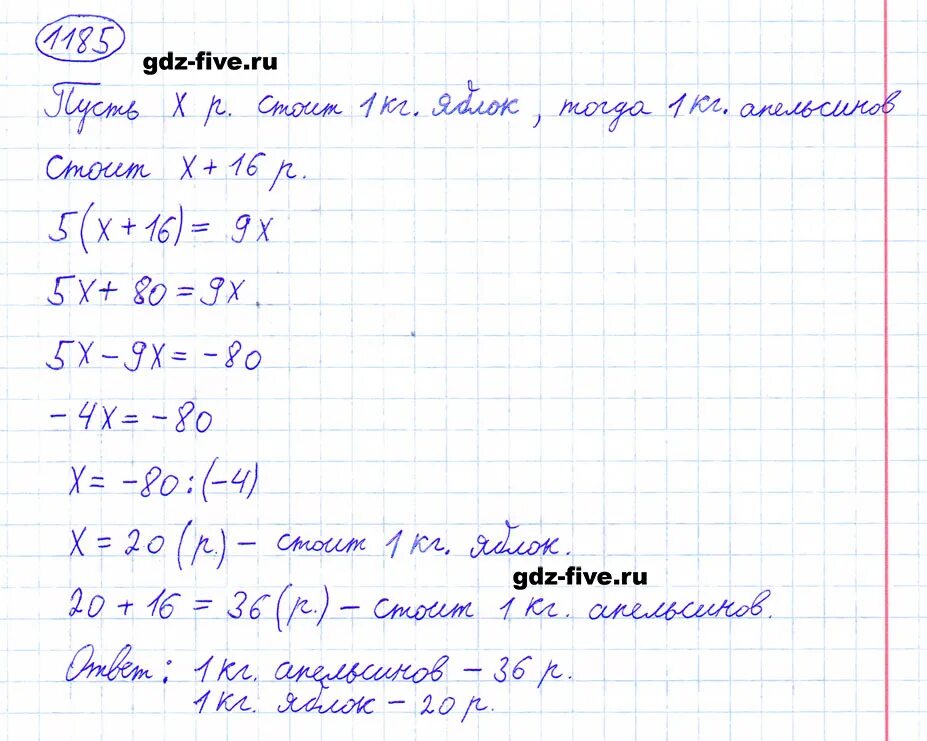 1185
gdz-five.ru
Пусть х р. стоит 1 кг. яблок, тогда 1 кг. апельсинов
стоит х + 16 р.
5(х + 16) = 9х
5х + 80 = 9х
5х - 9х = -80
-4х = -80
х = -80 : (-4)
х = 20 (р.) – стоит 1 кг. яблок.
gdz-five.ru
20 + 16 = 36 (р.) – стоит 1 кг. апельсинов.
Ответ: 1 кг. апельсинов – 36 р.
1 кг. яблок – 20 р.